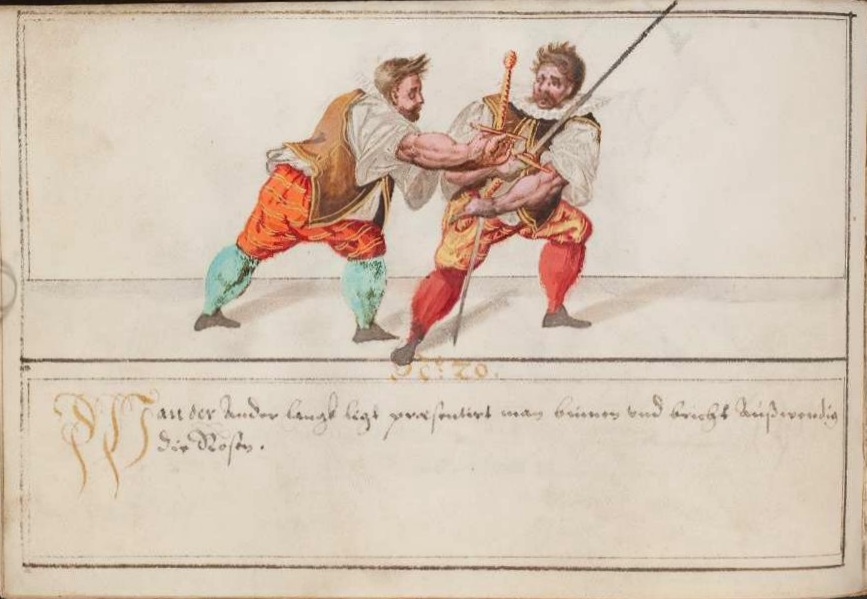 Fc: 20.
Wan der Ander langk ligt præsentirt man binnen vnd bricht Außwendig
die Rosen.